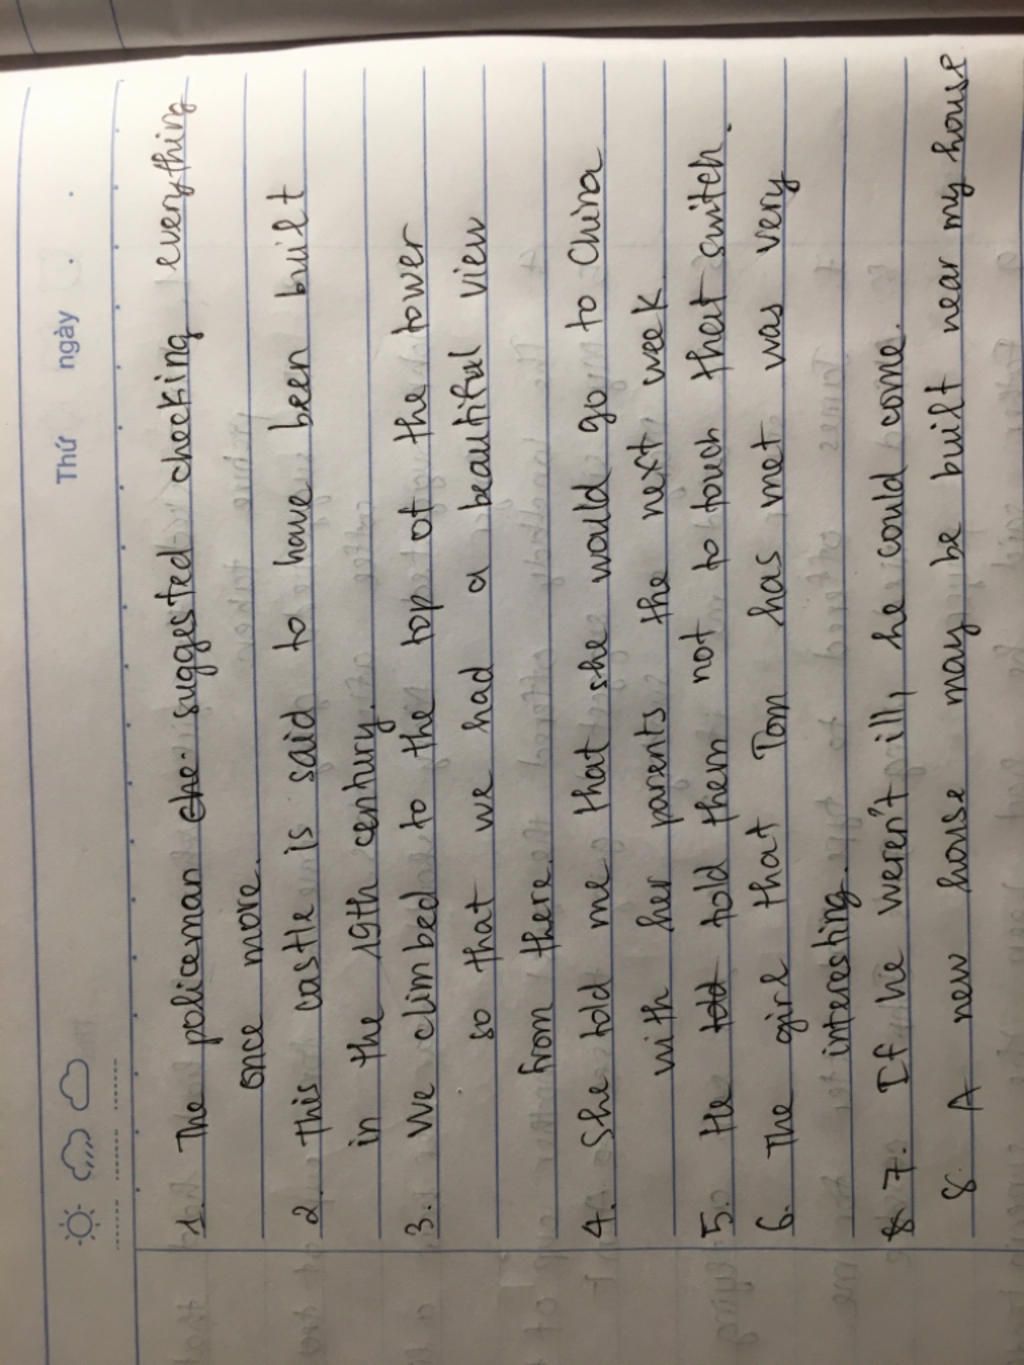 Thứ ngày . .
1. The policeman she suggested checking everything
once more.
2. this castle is said to have been built
in the 19th century.
3. We climbed to the top of the tower
so that we had a beautiful view
from there.
4. She told me that she would go to China
with her parents the next week
5. He told told them not to touch that switch.
6. The girl that Tom has met was very
interesting.
8 7. If he weren't ill, he could come.
8. A new house may be built near my house